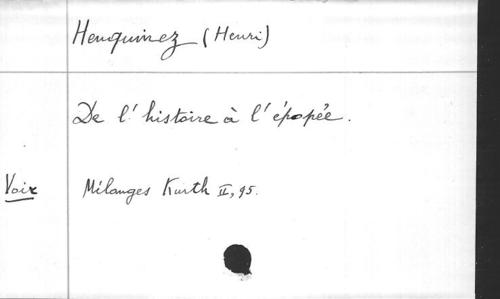 Henquinez (Henri)
De l'histoire à l'épopée.
Voir Mélanges Kurth II, 95.